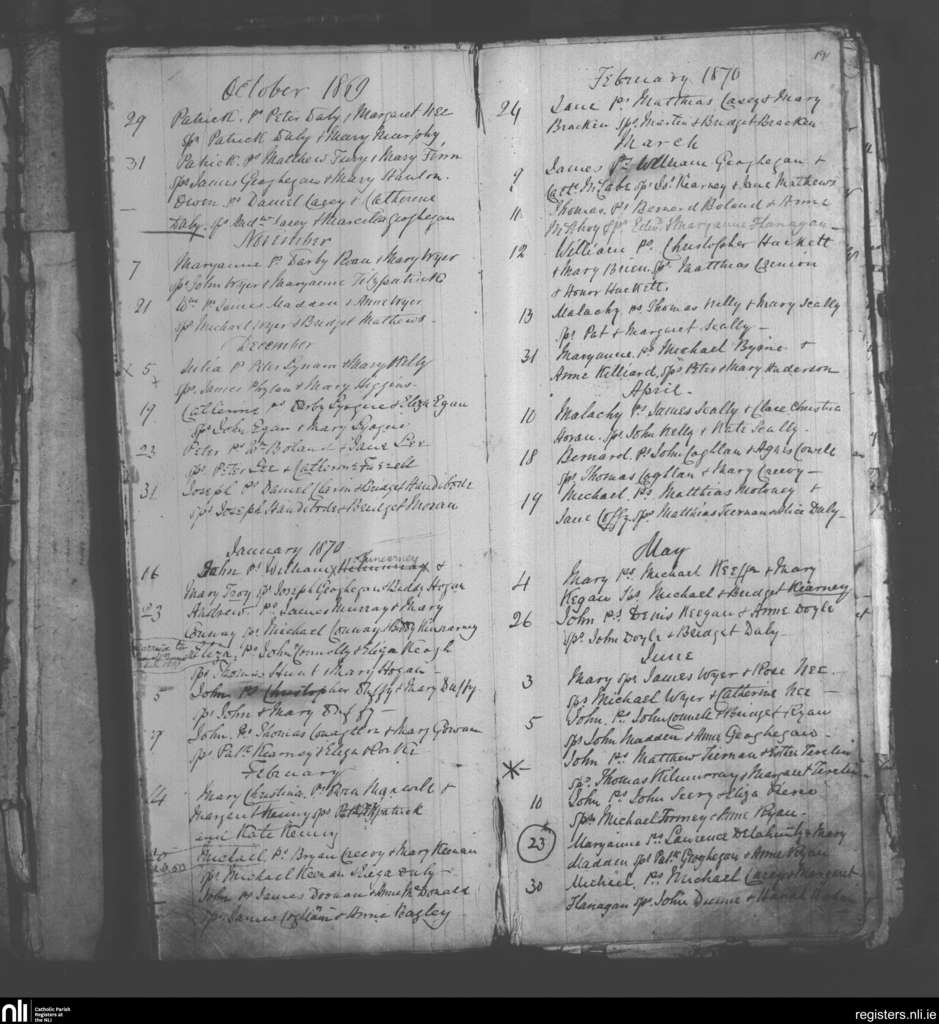 October 1869
29 Patrick. Ps Peter Daly & Margaret Nee
sps Patrick Daly & Mary Murphy
31 Patrick. Ps Matthew Fury & Mary Finn
sps James Geoghegan & Mary Hanlon.
Owen. ps Daniel Casey & Catherine
Daly. sps Casey & Geoghegan
November
7 Maryanne Ps Darby Ryan & Mary Wyer
sps John Wyer & Maryanne Fitzpatrick
21 Wm Ps James Madden & Anne Wyer
sps Michael Wyer & Bridget Mathews.
December
5 Julia Ps Peter Lynam & Mary Kelly
sps James Phylan & Mary Higgins.
19 Catherine ps Darby & Eliza Egan
sps John Egan & Mary
23 Peter Ps Wm Boland & Jane Lee
sps Peter Lee & Catherine Farrell
31 Joseph Ps Daniel & Bridget Handibode
sps Joseph Handibode & Bridget Moran
January 1870
16 John Ps William Kinnerney &
Mary Troy sps Joseph Geoghegan & Biddy Hogan
23 Andrew Ps James Murray & Mary
Conway sps Michael Conway & Biddy Kinnarney
Eliza, Ps John Connolly & Eliza Keogh
sps Thomas Hunt & Mary Hogan
5 John Ps Christopher Duffy & Mary Duffy
sps John & Mary Duffy
John, Ps Thomas & Mary Gowan
sps Patk Kearney & Eliza
February
Mary Christina, Ps &
Margaret Kenny sps Patk Fitzpatrick
and Kate Kenny
Michael Ps Bryan Creevy & Mary Keenan
sps Michael Keenan & Eliza Daly
John Ps James Doonan & Anne McDonald
sps James Coghlan & Anne Bagley
191
February 1870
24 Jane Ps Matthias Casey & Mary
Bracken sps Martin & Bridget Bracken
March
9 James Ps William Geoghegan &
Cath. McCabe sps Js. Kearney & Jane Mathews
11 Thomas, Ps Bernard Boland & Anne
McEvoy sps Edwd & Maryanne Flanagan
12 William Ps. Christopher Hackett
& Mary Brien sps Matthias
& Honor Hackett.
13 Malachy Ps Thomas Kelly & Mary Scally
sps Pat & Margaret Scally
31 Maryanne. Ps Michael Byrne &
Anne Killiard, sps Peter & Mary Anderson
April.
10 Malachy Ps. James Scally & Clare Christia
Horan. sps John Kelly & Kate Scally.
18 Bernard. Ps John Coghlan & Agnes
sps Thomas Coghlan & Mary Creevy
19 Michael Ps Matthias Moloney &
Jane Coffy sps Matthias Tiernan & Alice Daly
May
4 Mary Ps. Michael Keeffe & Mary
Kegan sps Michael & Bridget Kearney
26 John Ps Denis Keegan & Anne Doyle
sps John Doyle & Bridget Daly
June
3 Mary sps James Wyer & Rose Nee.
sps Michael Wyer & Catherine Nee
5 John, Ps. John Connell & Bridget Ryan
sps John Madden & Anne Geoghegan
John Ps Matthew Tiernan & Esther
sps Thomas Kilmurray & Margaret
10 John Ps John Seery & Eliza
sps Michael Tormey & Anne Ryan
23 Maryanne Ps. Lawrence Delahunty & Mary
Madden sps Patk Geoghegan & Anne Ryan
30 Michael, Ps Michael Casey & Margaret
Flanagan sps John Dunne &
nli
Catholic Parish
Registers at
the NLI
registers.nli.ie